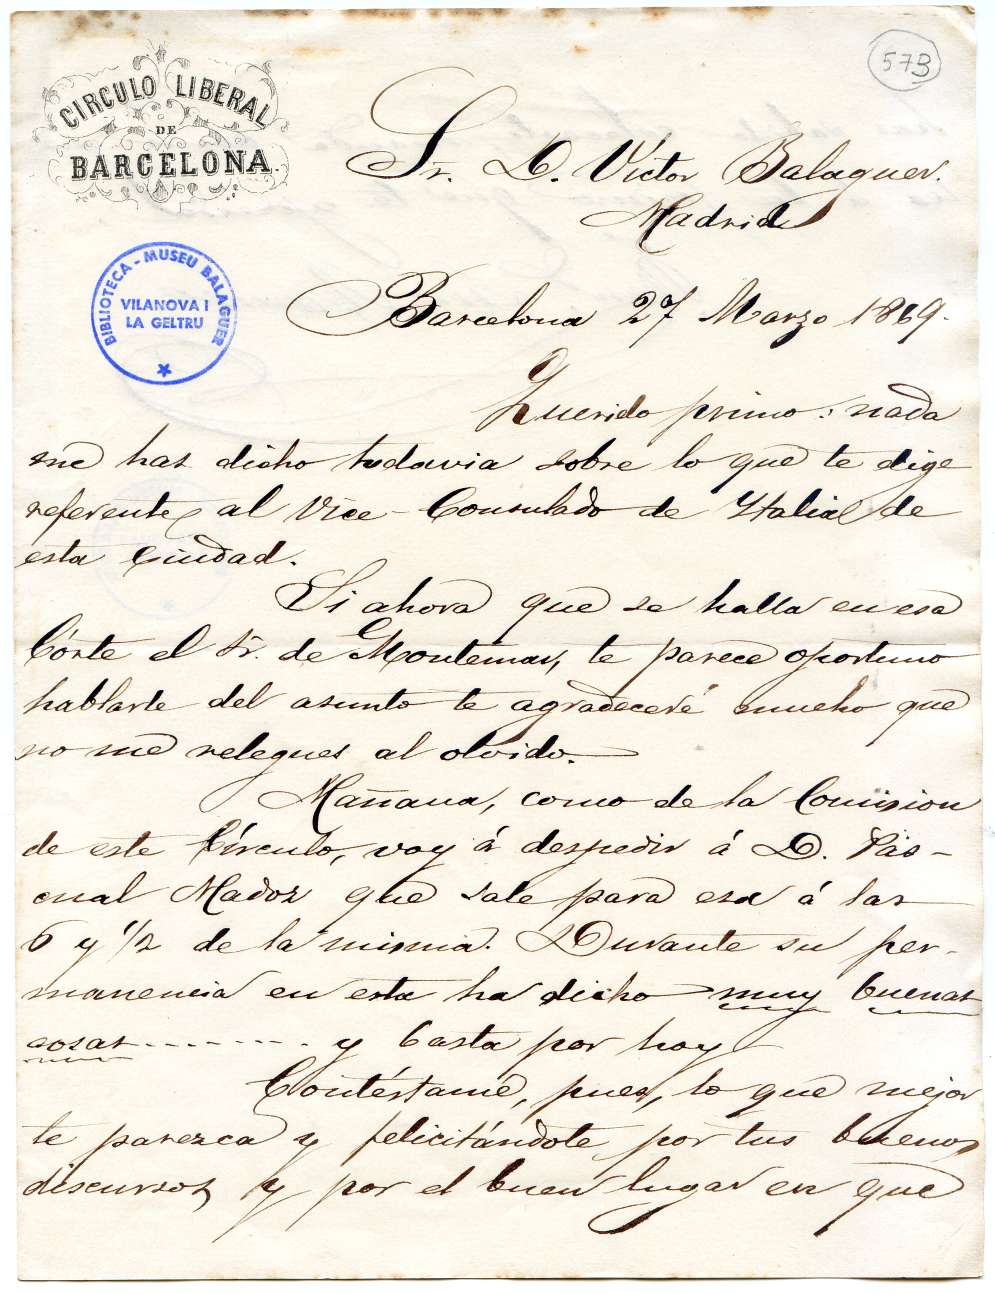 573
CIRCULO LIBERAL
DE
BARCELONA.
Sr. D. Víctor Balaguer.
Madrid
BIBLIOTECA - MUSEU BALAGUER
VILANOVA I
LA GELTRU
Barcelona 27 Marzo 1869.
Querido primo: nada
me has dicho todavia sobre lo que te dige
referente al Vice-Consulado de Italia de
esta Ciudad.
Si ahora que se halla en esa
Córte el Sr. de Montemar, te parece oportuno
hablarle del asunto te agradeceré mucho que
no me relegues al olvido.
Mañana, como de la Comision
de este Círculo, voy á despedir á D. Pas-
cual Madoz que sale para esa á las
6 y 1/2 de la misma. Durante su per-
manencia en esta ha dicho muy buenas
cosas......... y basta por hoy
Contéstame, pues, lo que mejor
te parezca y felicitándote por tus buenos
discursos y por el buen lugar en que